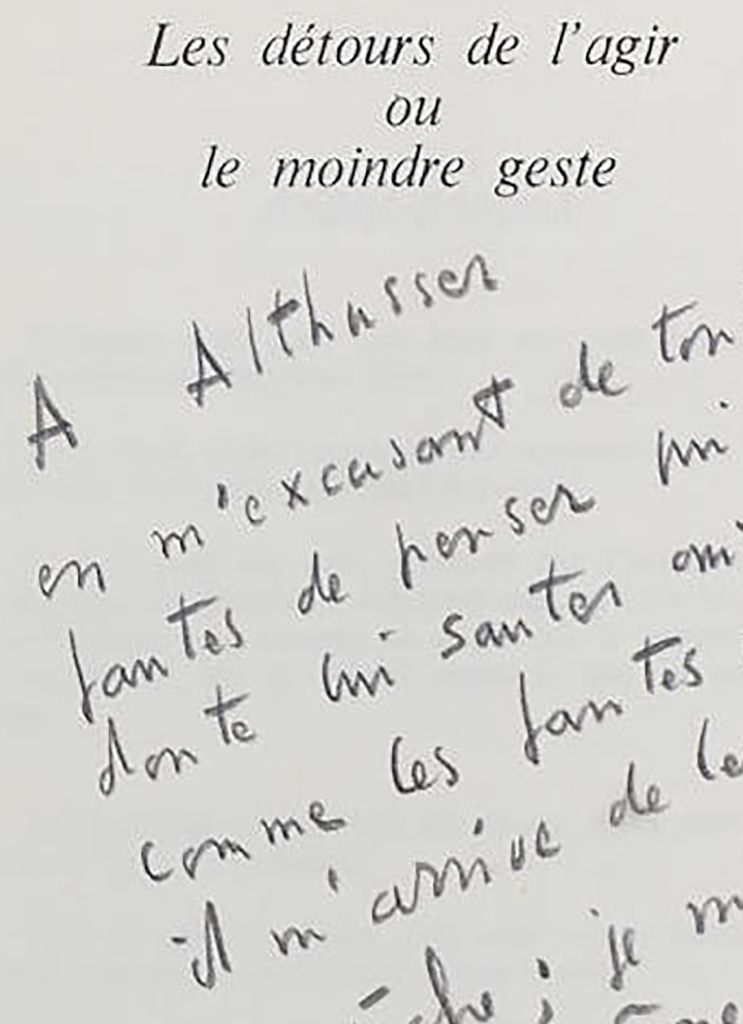 Les détours de l'agir
ou
le moindre geste
A Althusser
en m'excusant de
fautes de penser qui
doute lui sauter
comme les fautes
il m'arrive de
; je